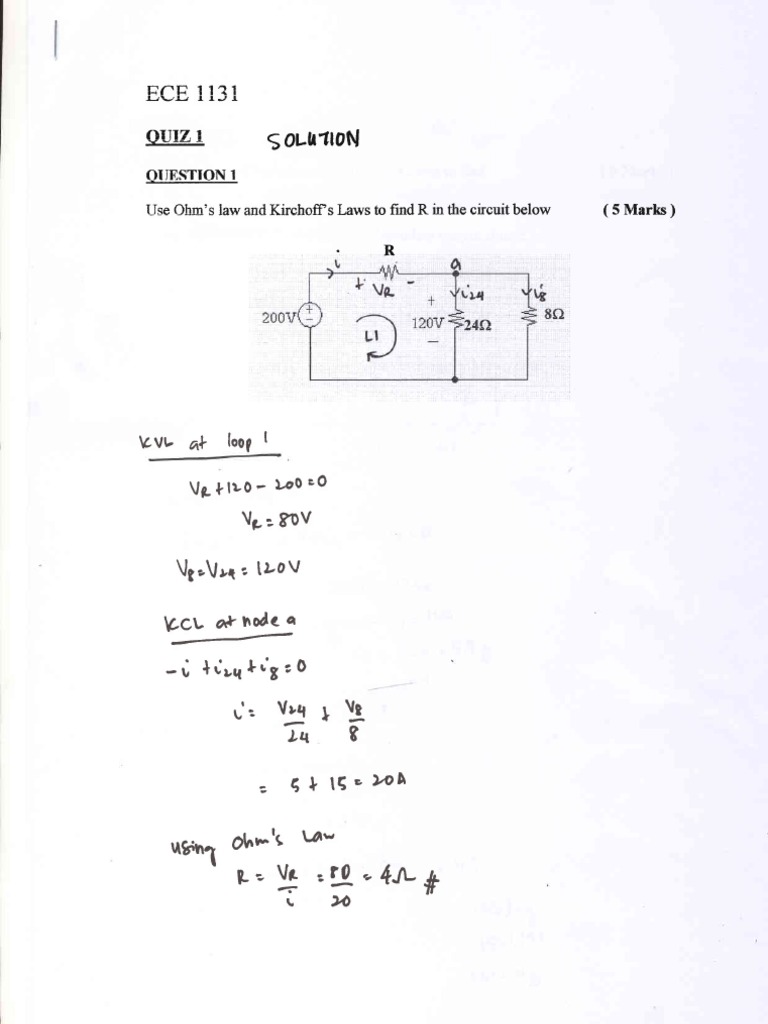 ECE 1131
QUIZ 1 SOLUTION
QUESTION 1
Use Ohm's law and Kirchoff's Laws to find R in the circuit below ( 5 Marks )
R
i
a
+ VR -
i24
i8
200V
+
-
L1
+
120V
-
24Ω
8Ω
KVL at loop 1
VR + 120 - 200 = 0
VR = 80V
V8 = V24 = 120V
KCL at node a
-i + i24 + i8 = 0
i = V24/24 + V8/8
= 5 + 15 = 20A
using Ohm's Law
R = VR/i = 80/20 = 4Ω #